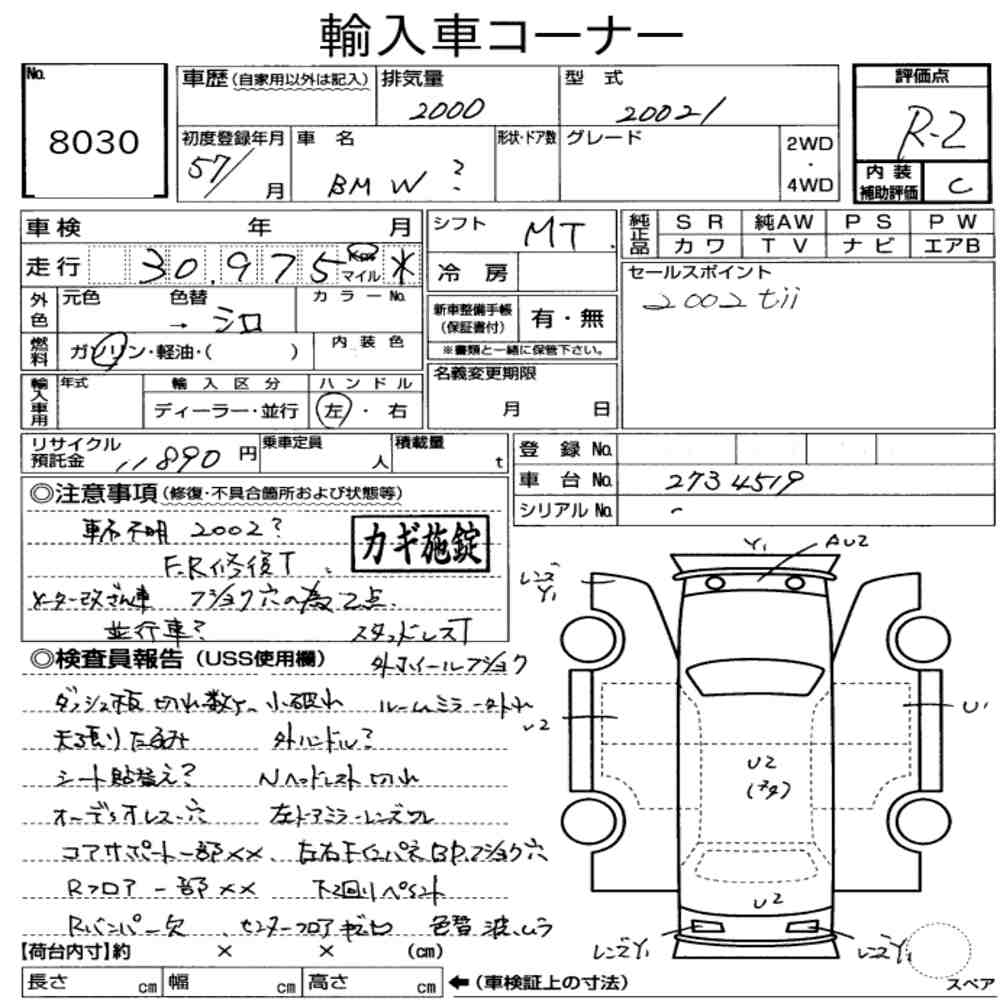 輸入車コーナー
No. 8030
車歴(自家用以外は記入) 排気量 2000 型式 2002/
初度登録年月 57/ 月 車名 BMW? 形状・ドア数 グレード 2WD・4WD
評価点 R-2
内装補助評価 C
車検 年 月
走行 30,975 Km マイル *
外色 元色 色替 → シロ カラーNo.
燃料 ガソリン・軽油・( ) 内装色
輸入車用 年式 輸入区分 ディーラー・並行 ハンドル 左・右
シフト MT
冷房
新車整備手帳(保証書付) 有・無
※書類と一緒に保管下さい。
名義変更期限 月 日
純正品 SR 純AW PS PW
カワ TV ナビ エアB
セールスポイント
2002tii
リサイクル預託金 11890円 乗車定員 人 積載量 t
登録No.
車台No. 2734519
シリアルNo. -
◎注意事項(修復・不具合箇所および状態等)
車名不明 2002?
カギ施錠
F.R修復T
メーター改ざん車 フショク穴の為2点
並行車? スタッドレスT
◎検査員報告(USS使用欄) 外ホイールフショク
ダッシュ板切れ数ヶ 小破れ ルームミラー外れ
天張りたるみ 外ハンドル?
シート貼替え? Nヘッドレスト切れ
オーディオレス・穴 左ドアミラーレンズワレ
コアサポート一部XX 左右 BP.フショク穴
Rフロア一部XX 下回りペイント
Rバンパー欠 センターフロアギボロ 色替 波、ムラ
Y1 AU2
レンズY1
U2 U1
U2
U2
レンズY1 レンズY1
スペア
【荷台内寸】約 × × (cm)
長さ cm 幅 cm 高さ cm ←(車検証上の寸法)